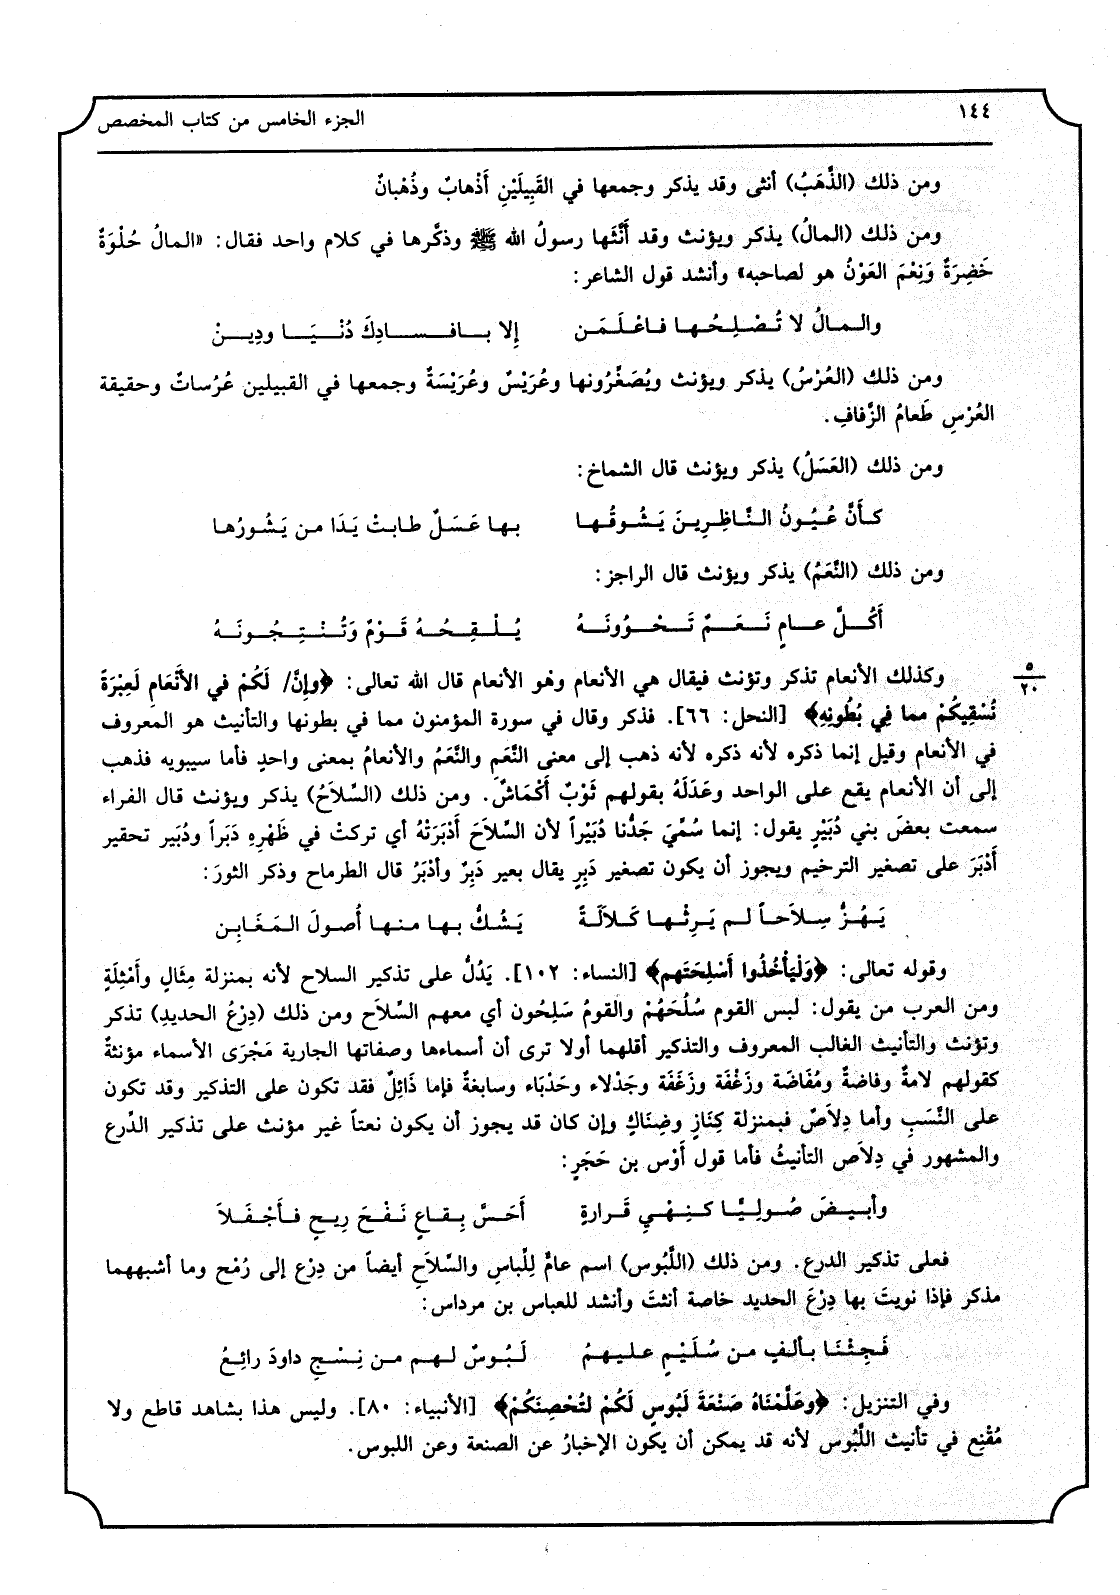 ١٤٤ الجزء الخامس من كتاب المخصص
ومن ذلك (الذَّهَبُ) أنثى وقد يذكر وجمعها في القَبِيلَيْنِ أَذْهابٌ وذُهْبانٌ
ومن ذلك (المالُ) يذكر ويؤنث وقد أَنَّثها رسولُ الله ﷺ وذكَّرها في كلام واحد فقال: «المالُ حُلْوَةٌ
خَضِرَةٌ وَنِعْمَ العَوْنُ هو لصاحبه» وأنشد قول الشاعر:
والمالُ لا تُصْلِحُها فاعْلَمَن إلا بافسادِكَ دُنْيَا ودِينْ
ومن ذلك (العُرْسُ) يذكر ويؤنث ويُصَغَّرُونها وعُرَيْسٌ وعُرَيْسَةٌ وجمعها في القبيلين عُرُساتٌ وحقيقة
العُرْسِ طَعامُ الزَّفافِ.
ومن ذلك (العَسَلُ) يذكر ويؤنث قال الشماخ:
كأَنَّ عُيُونُ النَّاظِرِينَ يَشُوقُها بها عَسَلٌ طابتْ يَدَا من يَشُورُها
ومن ذلك (النَّعَمُ) يذكر ويؤنث قال الراجز:
أَكُلَّ عامٍ نَعَمٌ تَحْوُونَهُ يُلْقِحُهُ قَوْمٌ وَتُنْتِجُونَهُ
وكذلك الأنعام تذكر وتؤنث فيقال هي الأنعام وهُو الأنعام قال الله تعالى: ﴿وإنَّ/ لَكُمْ في الأَنْعَامِ لَعِبْرَةً
٥
٢٠
نُسْقِيكُمْ مما فِي بُطُونِهِ﴾ [النحل: ٦٦]. فذكر وقال في سورة المؤمنون مما في بطونها والتأنيث هو المعروف
في الأنعام وقيل إنما ذكره لأنه ذكره لأنه ذهب إلى معنى النَّعَمِ والنَّعَمُ والأنعامُ بمعنى واحدٍ فأما سيبويه فذهب
إلى أن الأنعام يقع على الواحد وعَدَلَهُ بقولهم ثَوْبٌ أَكْمَاشٌ. ومن ذلك (السِّلاَحُ) يذكر ويؤنث قال الفراء
سمعت بعضَ بني دُبَيْرٍ يقول: إنما سُمِّيَ جَدُّنا دُبَيْراً لأن السِّلاَحَ أَدْبَرَتْهُ أي تركتْ في ظَهْرِهِ دَبَراً ودُبَير تحقير
أَدْبَرَ على تصغير الترخيم ويجوز أن يكون تصغير دَبِرٍ يقال بعير دَبِرٌ وأدْبَرُ قال الطرماح وذكر الثورَ:
يَهُزُّ سِلاَحاً لم يَرِثْها كَلاَلَةً يَشُكُّ بها منها أُصولَ المَغَابِن
وقوله تعالى: ﴿وَلْيَأْخُذُوا أَسْلِحَتَهم﴾ [النساء: ١٠٢]. يَدُلُّ على تذكير السلاح لأنه بمنزلة مِثَالٍ وأَمْثِلَةٍ
ومن العرب من يقول: لبس القوم سُلُحَهُمْ والقومُ سَلِحُون أي معهم السِّلاَح ومن ذلك (دِرْعُ الحديدِ) تذكر
وتؤنث والتأنيث الغالب المعروف والتذكير أقلهما أولا ترى أن أسماءها وصفاتها الجارية مَجْرَى الأسماء مؤنثةٌ
كقولهم لامةٌ وفاضةٌ ومُفَاضَة وزَغْفَة وزَغَفَة وجَدْلاء وحَدْبَاء وسابغةٌ فإما ذَائِلٌ فقد تكون على التذكير وقد تكون
على النَّسَبِ وأما دِلاَصٌ فبمنزلة كِنَازٍ وضِنَاكٍ وإن كان قد يجوز أن يكون نعتاً غير مؤنث على تذكير الدِّرع
والمشهور في دِلاَص التأنيثُ فأما قول أَوْس بن حَجَرٍ:
وأبيضَ صُولِيًّا كنِهْيِ قَرارةٍ أَحَسَّ بِقاعٍ نَفْحَ رِيحٍ فأَجْفَلاَ
فعلى تذكير الدرع. ومن ذلك (اللَّبُوس) اسم عامٌّ لِلِّباسِ والسِّلاَحِ أيضاً من دِرْع إلى رُمْح وما أشبههما
مذكر فإذا نويتَ بها دِرْعَ الحديد خاصة أنثتَ وأنشد للعباس بن مرداس:
فَجِئْنَا بألفٍ من سُلَيْمٍ عليهمُ لَبُوسٌ لهم من نِسْجِ داودَ رائِعُ
وفي التنزيل: ﴿وعَلَّمْنَاهُ صَنْعَةَ لَبُوسٍ لَكُمْ لتُحْصِنَكُمْ﴾ [الأنبياء: ٨٠]. وليس هذا بشاهد قاطع ولا
مُقْنِعِ في تأنيث اللَّبُوس لأنه قد يمكن أن يكون الإخبارُ عن الصنعة وعن اللبوس.